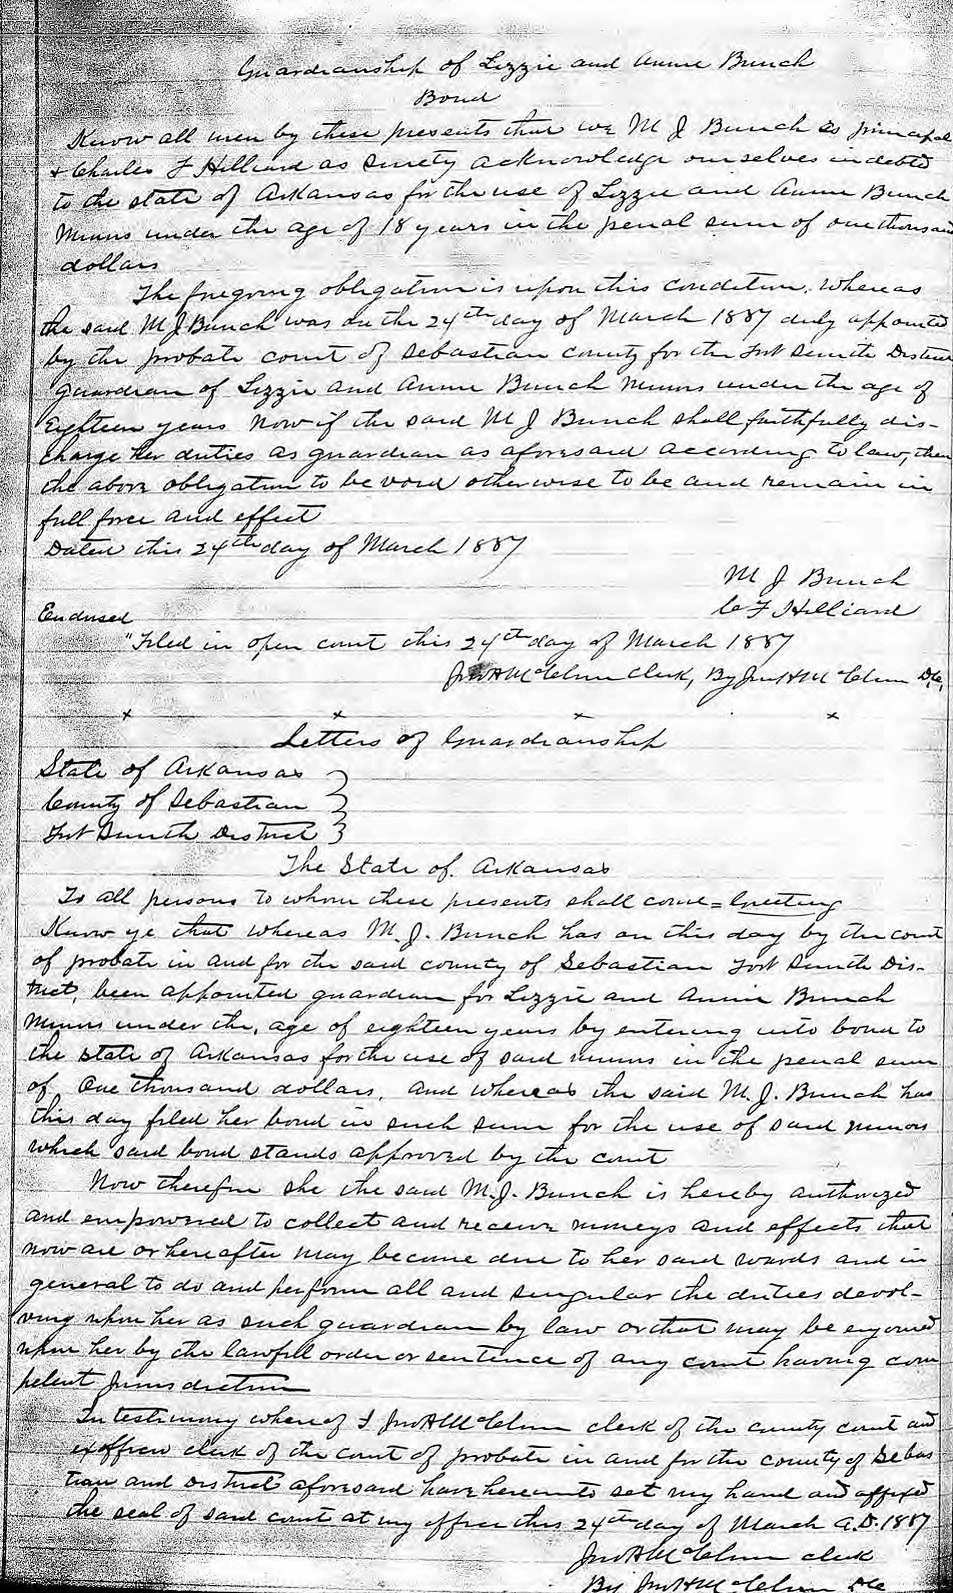 Guardianship of Lizzie and Annie Bunch
Bond
Know all men by these presents that we M J Bunch as principal
+ Charles F Hilliard as surety acknowledge ourselves indebted
to the state of Arkansas for the use of Lizzie and Annie Bunch
Minors under the age of 18 years in the penal sum of one thousand
dollars
The foregoing obligation is upon this condition, whereas
the said M J Bunch was on the 24th day of March 1887 duly appointed
by the probate court of Sebastian county for the Fort Smith District
guardian of Lizzie and Annie Bunch Minors under the age of
Eighteen years Now if the said M J Bunch shall faithfully dis-
charge her duties as guardian as aforesaid according to law, then
the above obligation to be void otherwise to be and remain in
full force and effect
Dated this 24th day of March 1887
M J Bunch
C F Hilliard
Endorsed
"Filed in open court this 24th day of March 1887
Jno H McClure clerk, By Jno H McClure D.C.
x x x x
Letters of Guardianship
State of Arkansas }
County of Sebastian }
Fort Smith District }
The State of Arkansas
To all persons to whom these presents shall come = Greeting
Know ye that whereas M. J. Bunch has on this day by the court
of probate in and for the said county of Sebastian Fort Smith Dis-
trict, been appointed guardian for Lizzie and Annie Bunch
Minors under the age of eighteen years by entering into bond to
the state of Arkansas for the use of said minors in the penal sum
of One thousand dollars, and whereas the said M. J. Bunch has
this day filed her bond in such sum for the use of said minors
which said bond stands approved by the court
Now therefore she the said M. J. Bunch is hereby authorized
and empowered to collect and receive moneys and effects that
now are or hereafter may become due to her said wards and in
general to do and perform all and singular the duties devol-
ving upon her as such guardian by law or that may be enjoined
upon her by the lawfull order or sentence of any court having com
petent jurisdiction
In testimony where of I Jno H McClure clerk of the county court and
exofficio clerk of the court of probate in and for the county of Sebas
tian and District aforesaid have hereunto set my hand and affixed
the seal of said court at my office this 24th day of March A.D. 1887
Jno H McClure clerk
By Jno H McClure DC